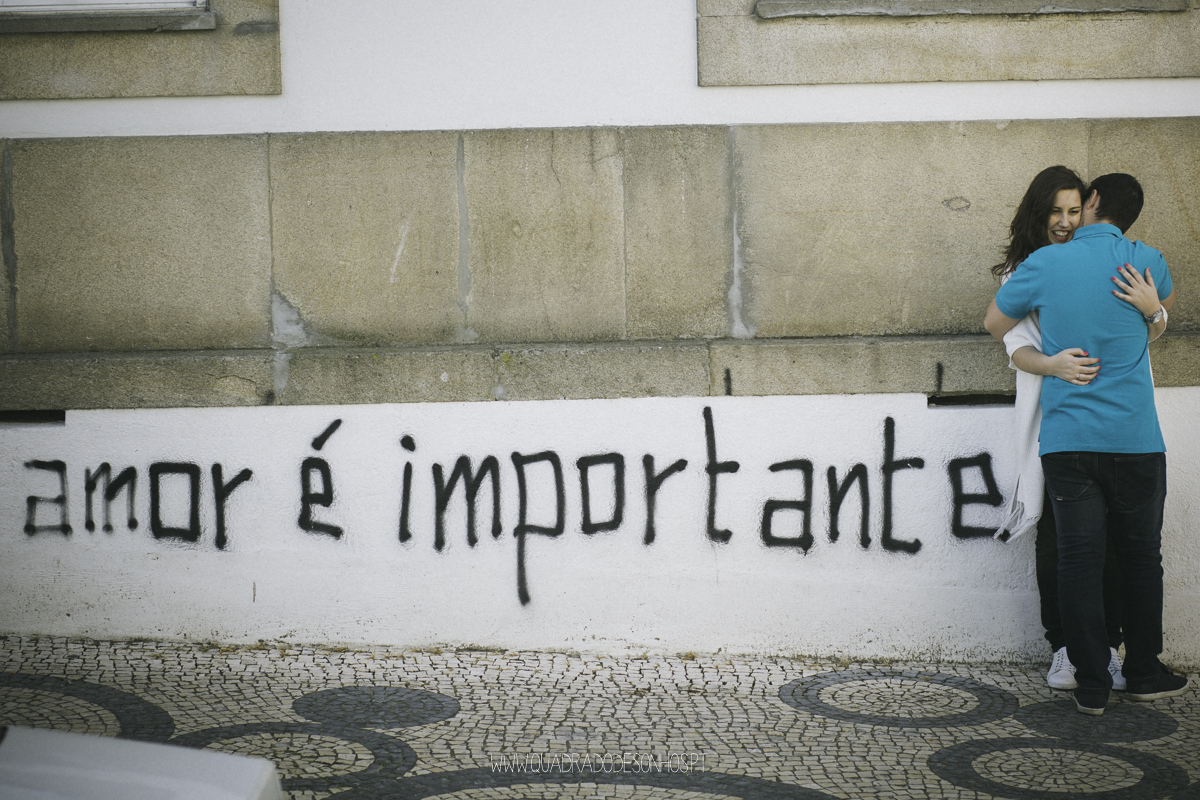 amor é importante
WWW.QUADRADODESONHOS.PT